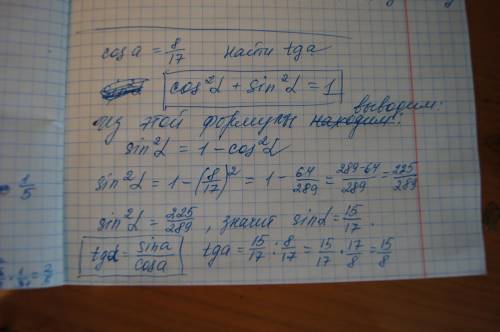 cos a = 8/17 найти tg a
cos²α + sin²α = 1
из этой формулы выводим:
sin²α = 1 - cos²α
sin²α = 1 - (8/17)² = 1 - 64/289 = 289-64/289 = 225/289
sin²α = 225/289, значит sin α = 15/17.
tg α = sin a/cos a tg a = 15/17 : 8/17 = 15/17 · 17/8 = 15/8
= 1/5